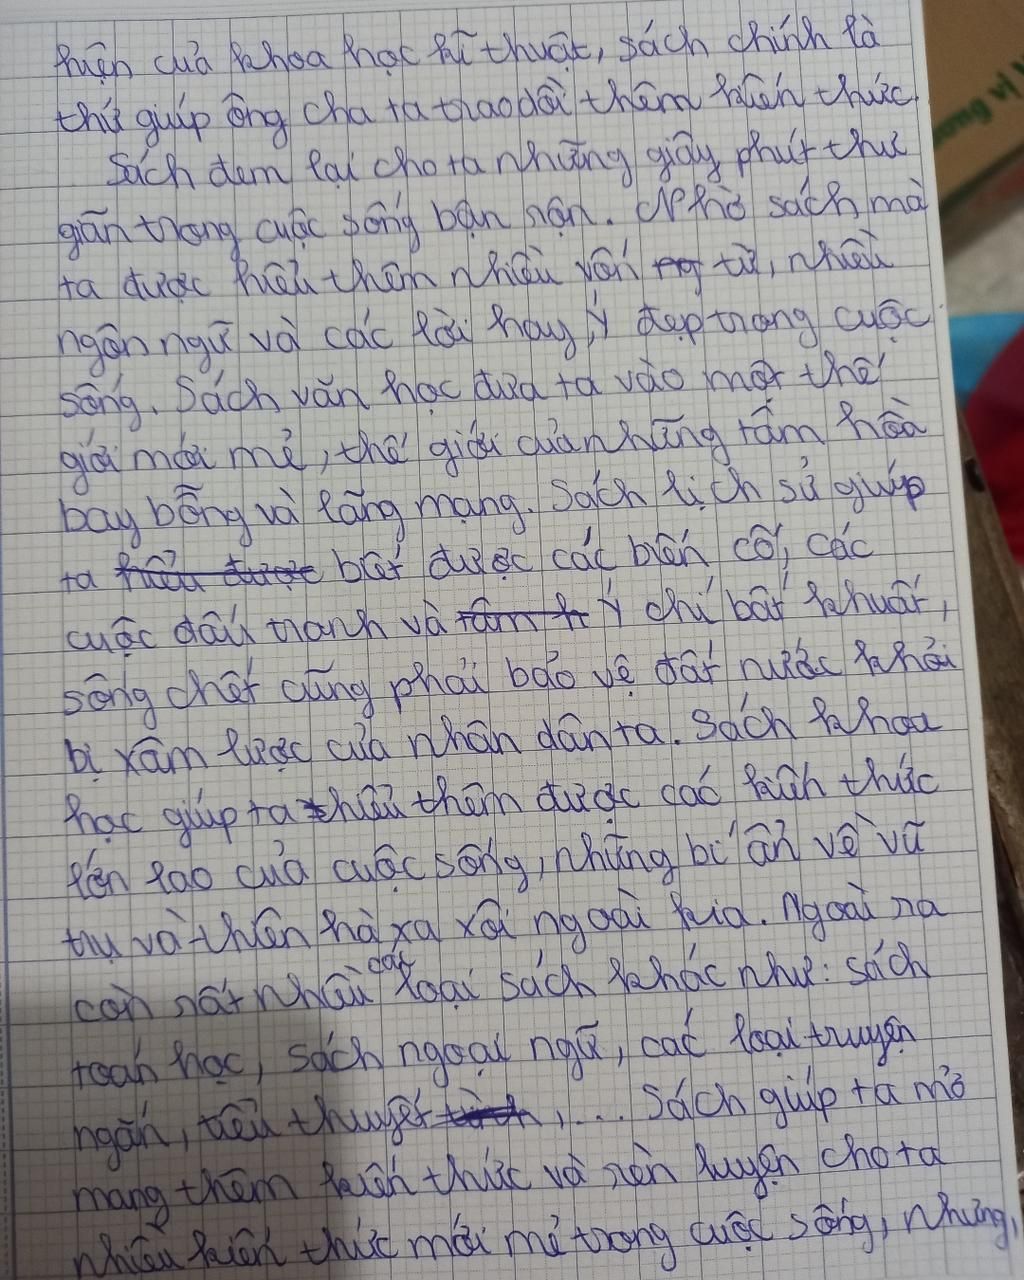 hiện của khoa học kĩ thuật, sách chính là
thứ giúp ông cha ta trao dồi thêm kiến thức.
Sách đem lại cho ta những giây phút thư
giãn trong cuộc sống bận rộn. Nhờ sách mà
ta được hiểu thêm nhiều vốn từ, nhiều
ngôn ngữ và các lời hay, ý đẹp trong cuộc
sống. Sách văn học đưa ta vào một thế
giới mới mẻ, thế giới của những tâm hồn
bay bổng và lãng mạng. Sách lịch sử giúp
ta biết được các biến cố, các
cuộc đấu tranh và ý chí bất khuất,
sống chết cũng phải bảo vệ đất nước khỏi
bị xâm lược của nhân dân ta. Sách khoa
học giúp ta hiểu thêm được các kiến thức
lớn lao của cuộc sống, những bí ẩn về vũ
trụ và thiên hà xa xôi ngoài kia. Ngoài ra
còn rất nhiều các loại sách khác như: sách
toán học, sách ngoại ngữ, các loại truyện
ngắn, tiểu thuyết, ... Sách giúp ta mở
mang thêm kiến thức và rèn luyện cho ta
nhiều kiến thức mới mẻ trong cuộc sống, những,